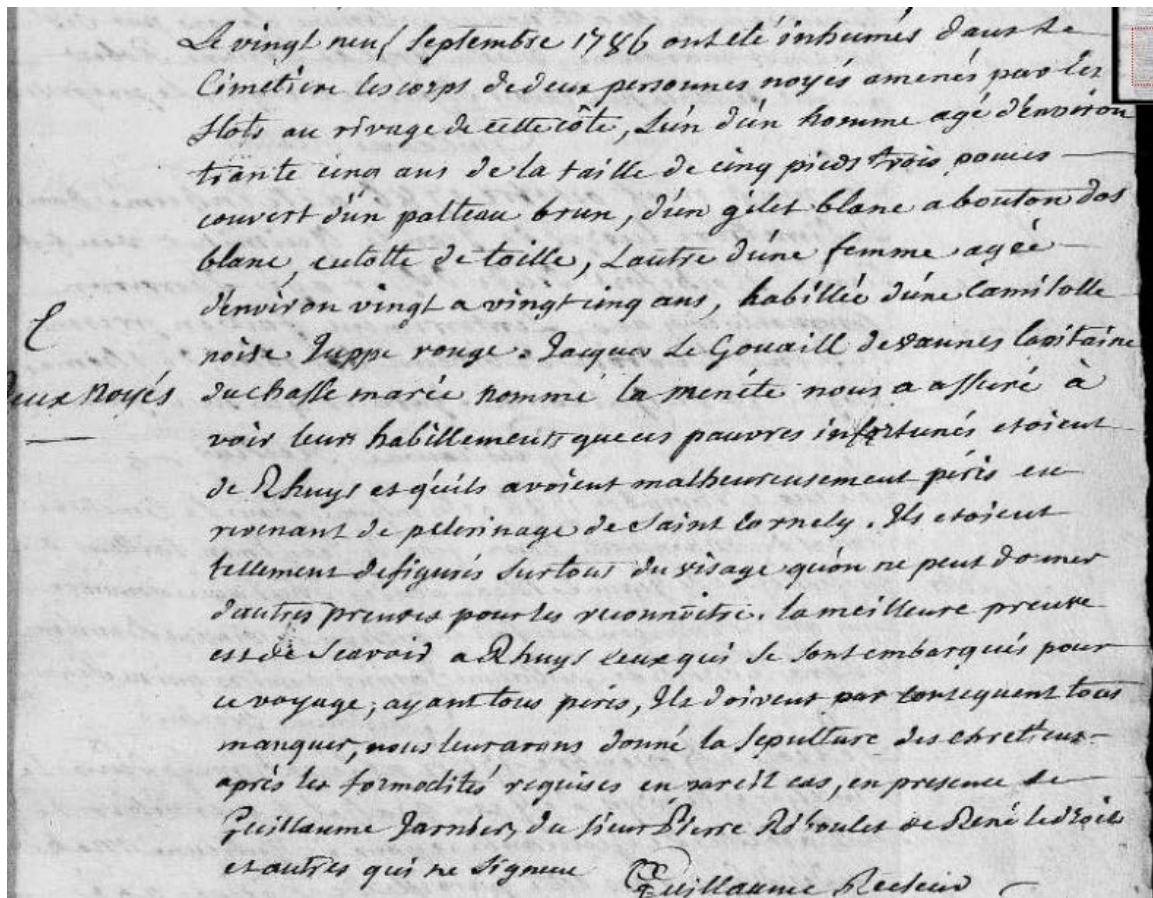 Le vingt neuf Septembre 1786 ont été inhumés dans le
Cimetiere les corps de deux personnes noyés amenés par les
flots au rivage de cette côte, L'un d'un homme agé d'environ
trante cinq ans de la taille de cinq pieds trois pouces
couvert d'un palteau brun, d'un gilet blanc a bouton dos
blanc, culotte de toille, L'autre d'une femme agéé
d'environ vingt a vingt cinq ans, habillée d'une Camisolle
noire Juppe rouge. Jacques Le Gouaill de vannes Capitaine
Deux Noyés
du chasse marée nommé la menéte nous a assuré à
voir leurs habillements que ces pauvres infortunés etoient
de Rhuys et qu'ils avoient malheureusement péris en
revenant de pélerinage de Saint Cornely. Ils etoient
tellement defigurés surtous du visage qu'on ne peut donner
d'autres preuves pour les reconnoître. la meilleure preuve
est de Scavoir a Rhuys ceux qui se sont embarqués pour
ce voyage, ayant tous péris, Ils doivent par consequent tous
manquer, nous leur avons donné la sepulture des chretiens
après les formalités requises en pareil cas, en presence de
Guillaume Jarnier, du sieur Pierre Réboulet de René le droit
et autres qui ne signent
Guillaume Recteur